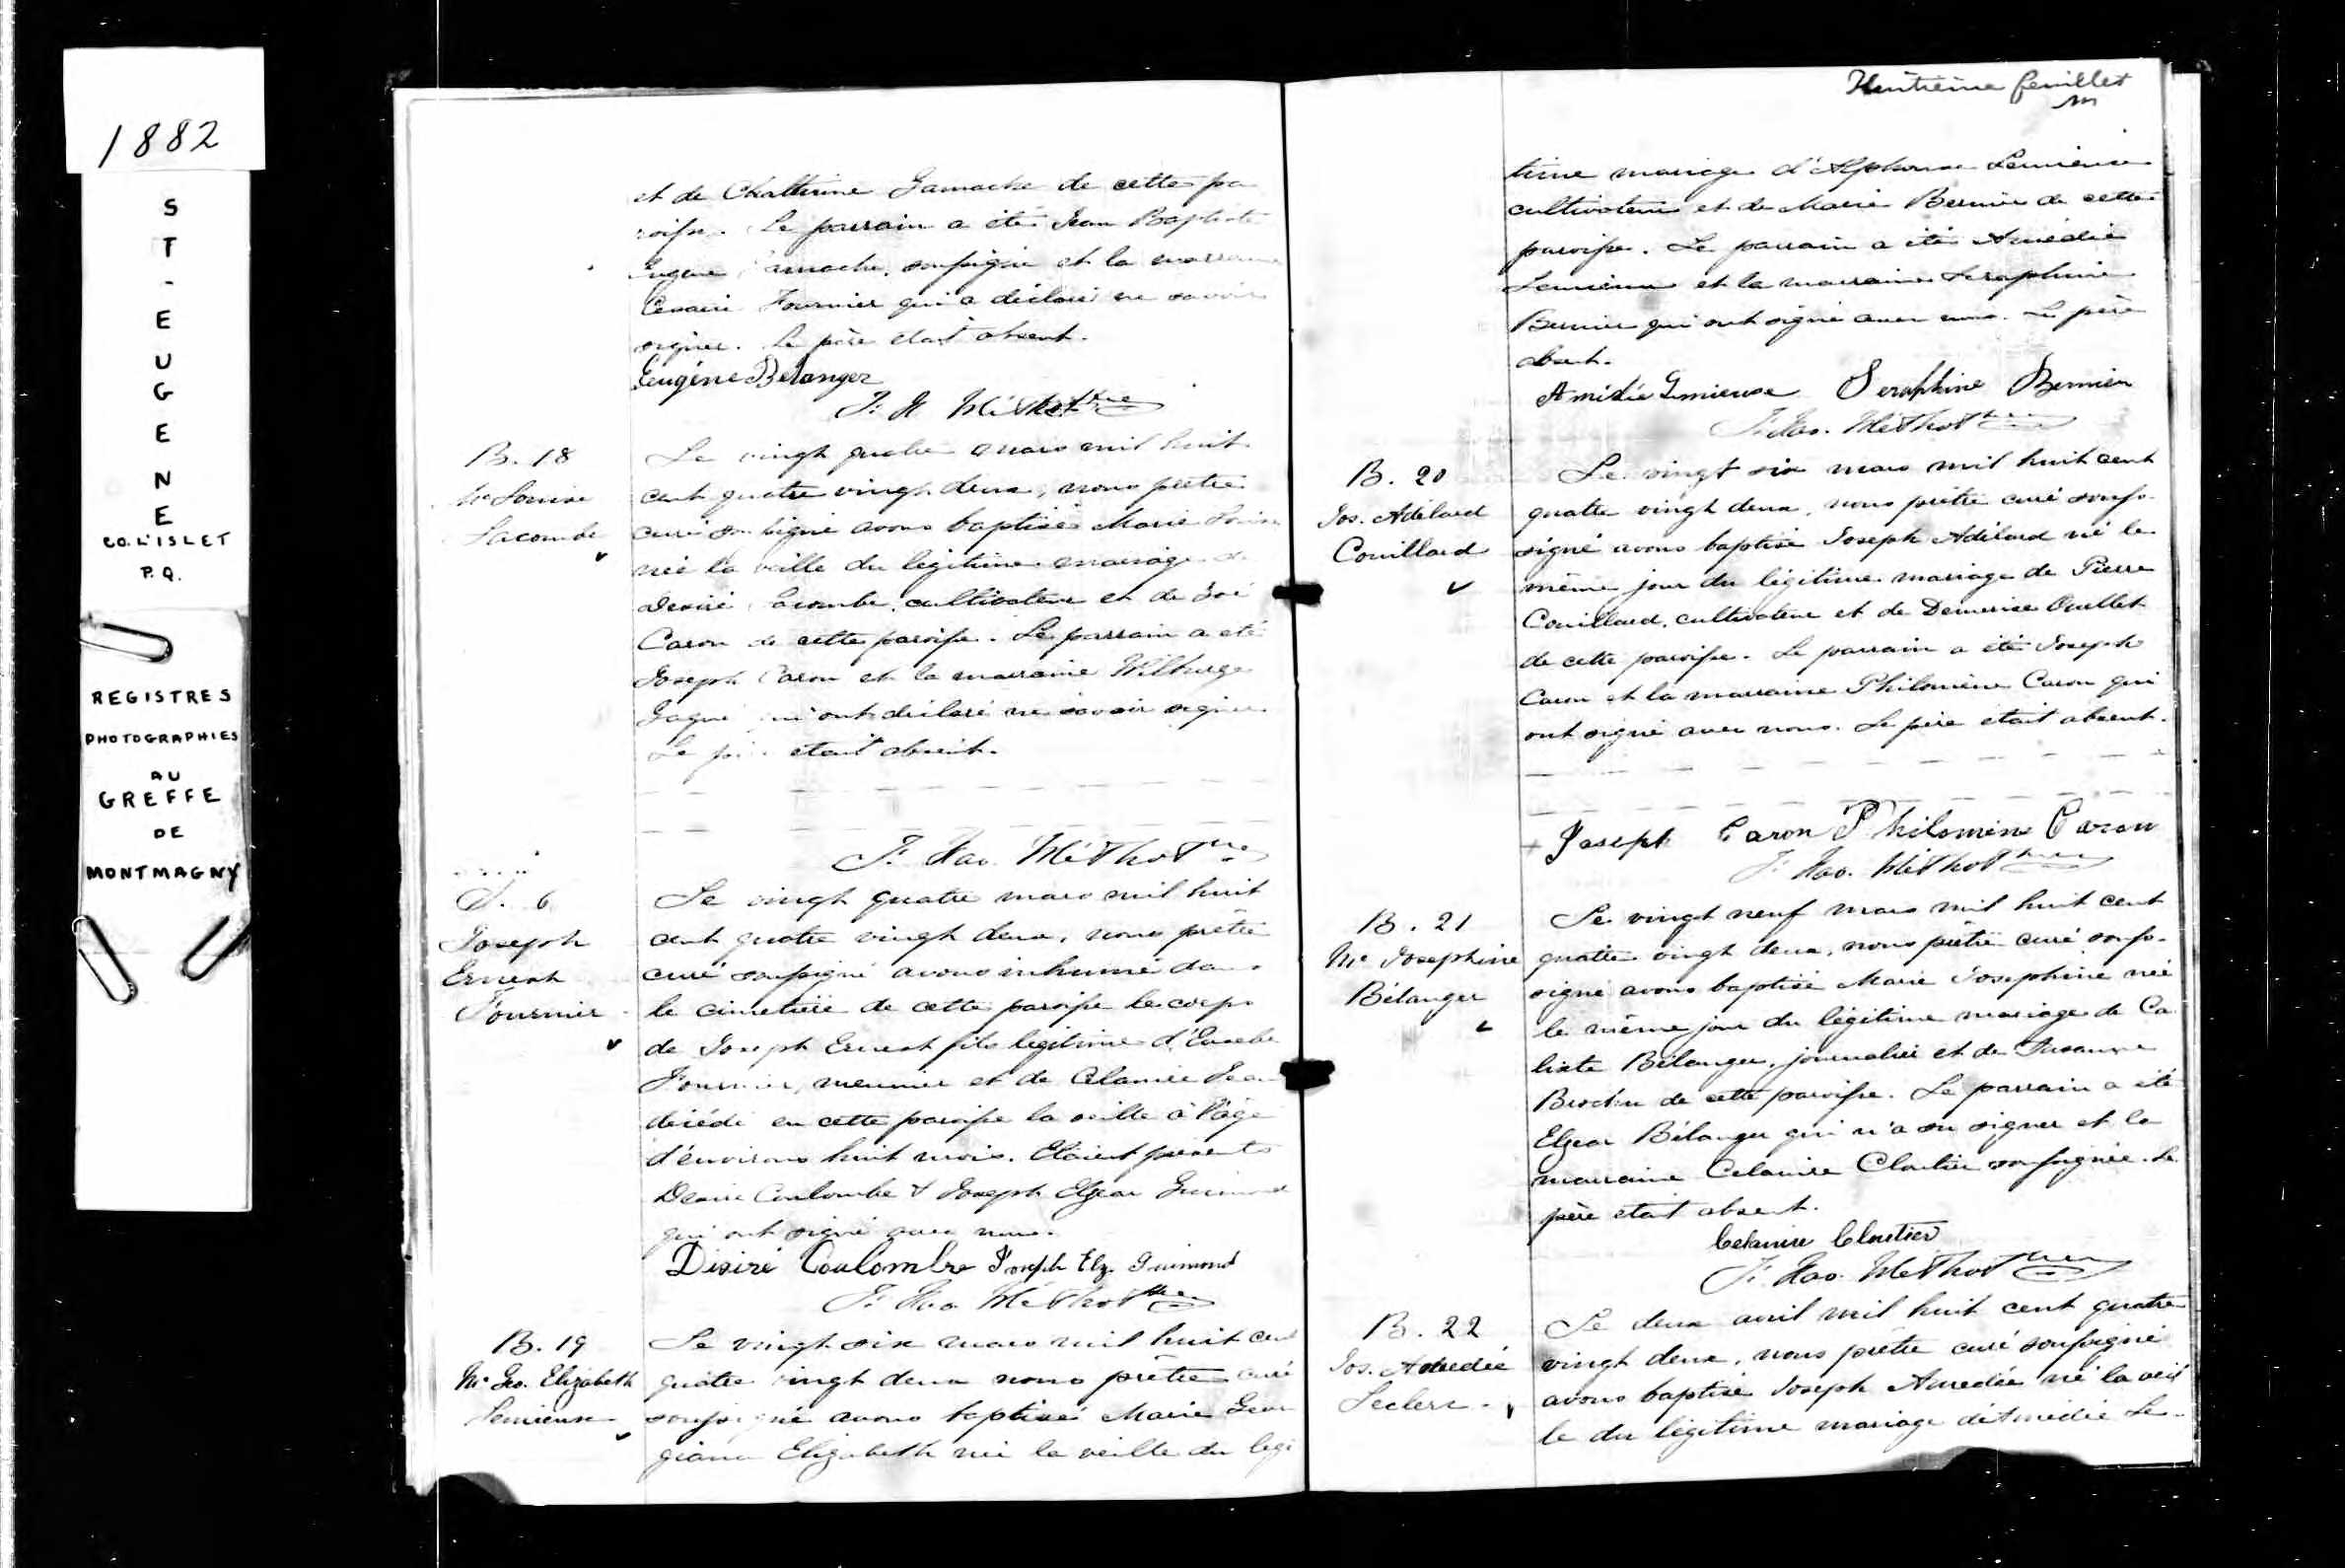 1882
ST-EUGENE
CO. L'ISLET
P.Q.
REGISTRES
PHOTOGRAPHIES
AU
GREFFE
DE
MONTMAGNY
et de Chatterine Gamache de cette pa
roisse. Le parrain a été Jean Baptiste
Eugene soussigné et la marraine
Cesarie Fournier qui a déclaré ne savoir
signer. Le père etait absent.
Eugène Bélanger
F. H. Méthot Ptre
B. 18
Me Louise
Lacombe
Le vingt quatre mars mil huit
cent quatre vingt deux, nous prêtre
curé soussigné avons baptisé Marie Louise
née la veille du légitime mariage de
Desiré Lacombe, cultivateur et de Zoé
Caron de cette paroisse. Le parrain a été
Joseph Caron et la marraine Wilburge
Gagné qui ont déclaré ne savoir signer
Le père etait absent.
F. Hao. Méthot Ptre
S. 6
Joseph
Ernest
Fournier
Le vingt quatre mars mil huit
cent quatre vingt deux, nous prêtre
curé soussigné avons inhumé dans
le cimetière de cette paroisse le corps
de Joseph Ernest fils légitime d'Eusebe
Fournier, meunier et de Celanire
décédé en cette paroisse la veille à l'âge
d'environs huit mois. Etaient présents
Desiré Coulombe & Joseph Elzear Guimond
qui ont signé avec nous.
Désiré Coulombe Joseph Elz. Guimond
F. Hao Méthot Ptre
B. 19
Me Geo. Elizabeth
Lemieux
Le vingt six mars mil huit cent
quatre vingt deux nous prêtre curé
soussigné avons baptisé Marie Geor
giana Elizabeth née la veille du legi
Huitième feuillet
time mariage d'Alphonse Lemieux
cultivateur et de Marie Bernier de cette
paroisse. Le parrain a été Amédée
Lemieux et la marraine Seraphine
Bernier qui ont signé avec nous. Le père
absent.
Amédée Lemieux Seraphine Bernier
F. Hao. Méthot Ptre
B. 20
Jos. Adélard
Couillard
Le vingt six mars mil huit cent
quatre vingt deux, nous prêtre curé sous-
signé avons baptisé Joseph Adélard né le
même jour du légitime mariage de Pierre
Couillard, cultivateur et de Demerise Ouellet
de cette paroisse. Le parrain a été Joseph
Caron et la marraine Philomène Caron qui
ont signé avec nous. Le père etait absent.
Joseph Caron Philomène Caron
F. Hao. Méthot Ptre
B. 21
Me Josephine
Bélanger
Le vingt neuf mars mil huit cent
quatre vingt deux, nous prêtre curé sous-
signé avons baptisé Marie Josephine née
le même jour du légitime mariage de Ca
lixte Bélanger, journalier et de Susanne
Brochu de cette paroisse. Le parrain a été
Elzear Bélanger qui n'a su signer et la
marraine Celanire Cloutier soussignée. Le
père etait absent.
Celanire Cloutier
F. Hao. Méthot Ptre
B. 22
Jos. Amedée
Leclerc
Le deux avril mil huit cent quatre
vingt deux, nous prêtre curé soussigné
avons baptisé Joseph Amedée né la veil
le du légitime mariage d'Amédée Le-